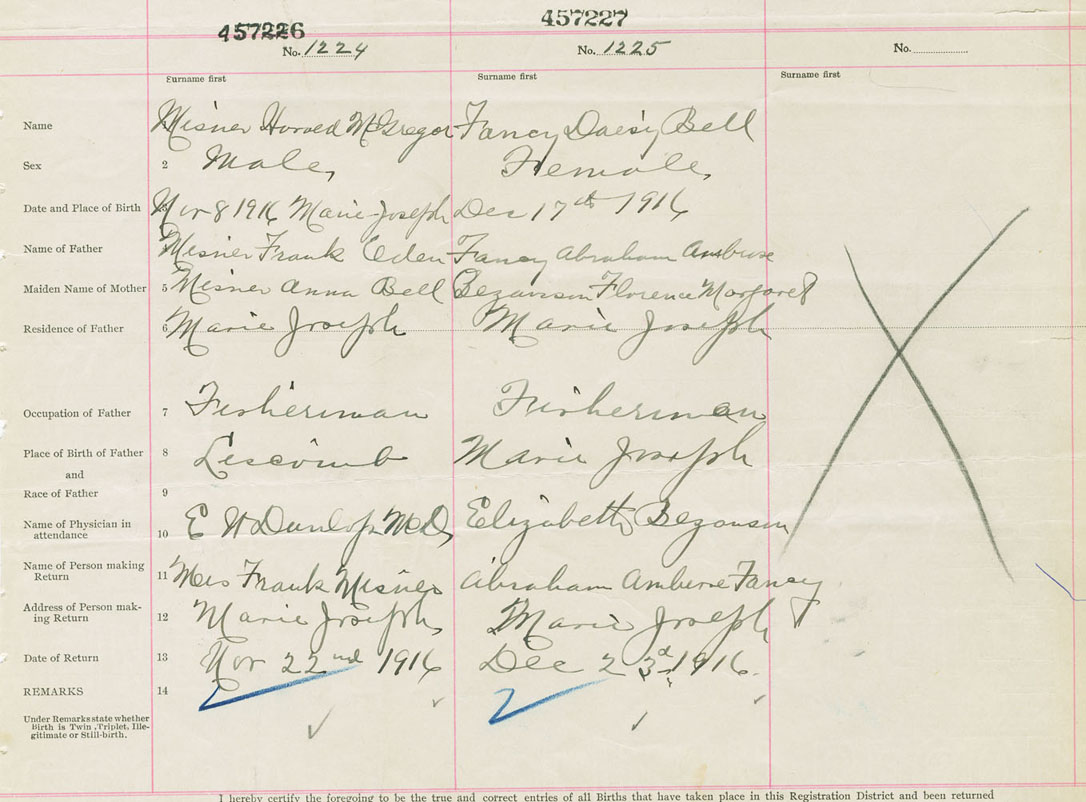 457226 457227
No. 1224 No. 1225 No.
Surname first Surname first Surname first
Name Misner Horved McGregor Fancy Daisy Bell
Sex 2 Male, Female,
Date and Place of Birth 3 Nov 8 1916 Marie Joseph Dec 17th 1916
Name of Father 4 Misner Frank Eden Fancy Abraham Ambrose
Maiden Name of Mother 5 Misner Anna Bell Bezanson Florence Margaret
Residence of Father 6 Marie Joseph Marie Joseph
Occupation of Father 7 Fisherman Fisherman
Place of Birth of Father 8 Liscomb Marie Joseph
and
Race of Father 9
Name of Physician in
attendance 10 E W Dunlop M.D, Elizabeth Bezanson
Name of Person making
Return 11 Mrs Frank Misner Abraham Ambrose Fancy
Address of Person mak-
ing Return 12 Marie Joseph, Marie Joseph
Date of Return 13 Nov 22nd 1916 Dec 23d 1916.
REMARKS 14
Under Remarks state whether
Birth is Twin, Triplet, Ille-
gitimate or Still-birth.
I hereby certify the foregoing to be the true and correct entries of all Births that have taken place in this Registration District and been returned